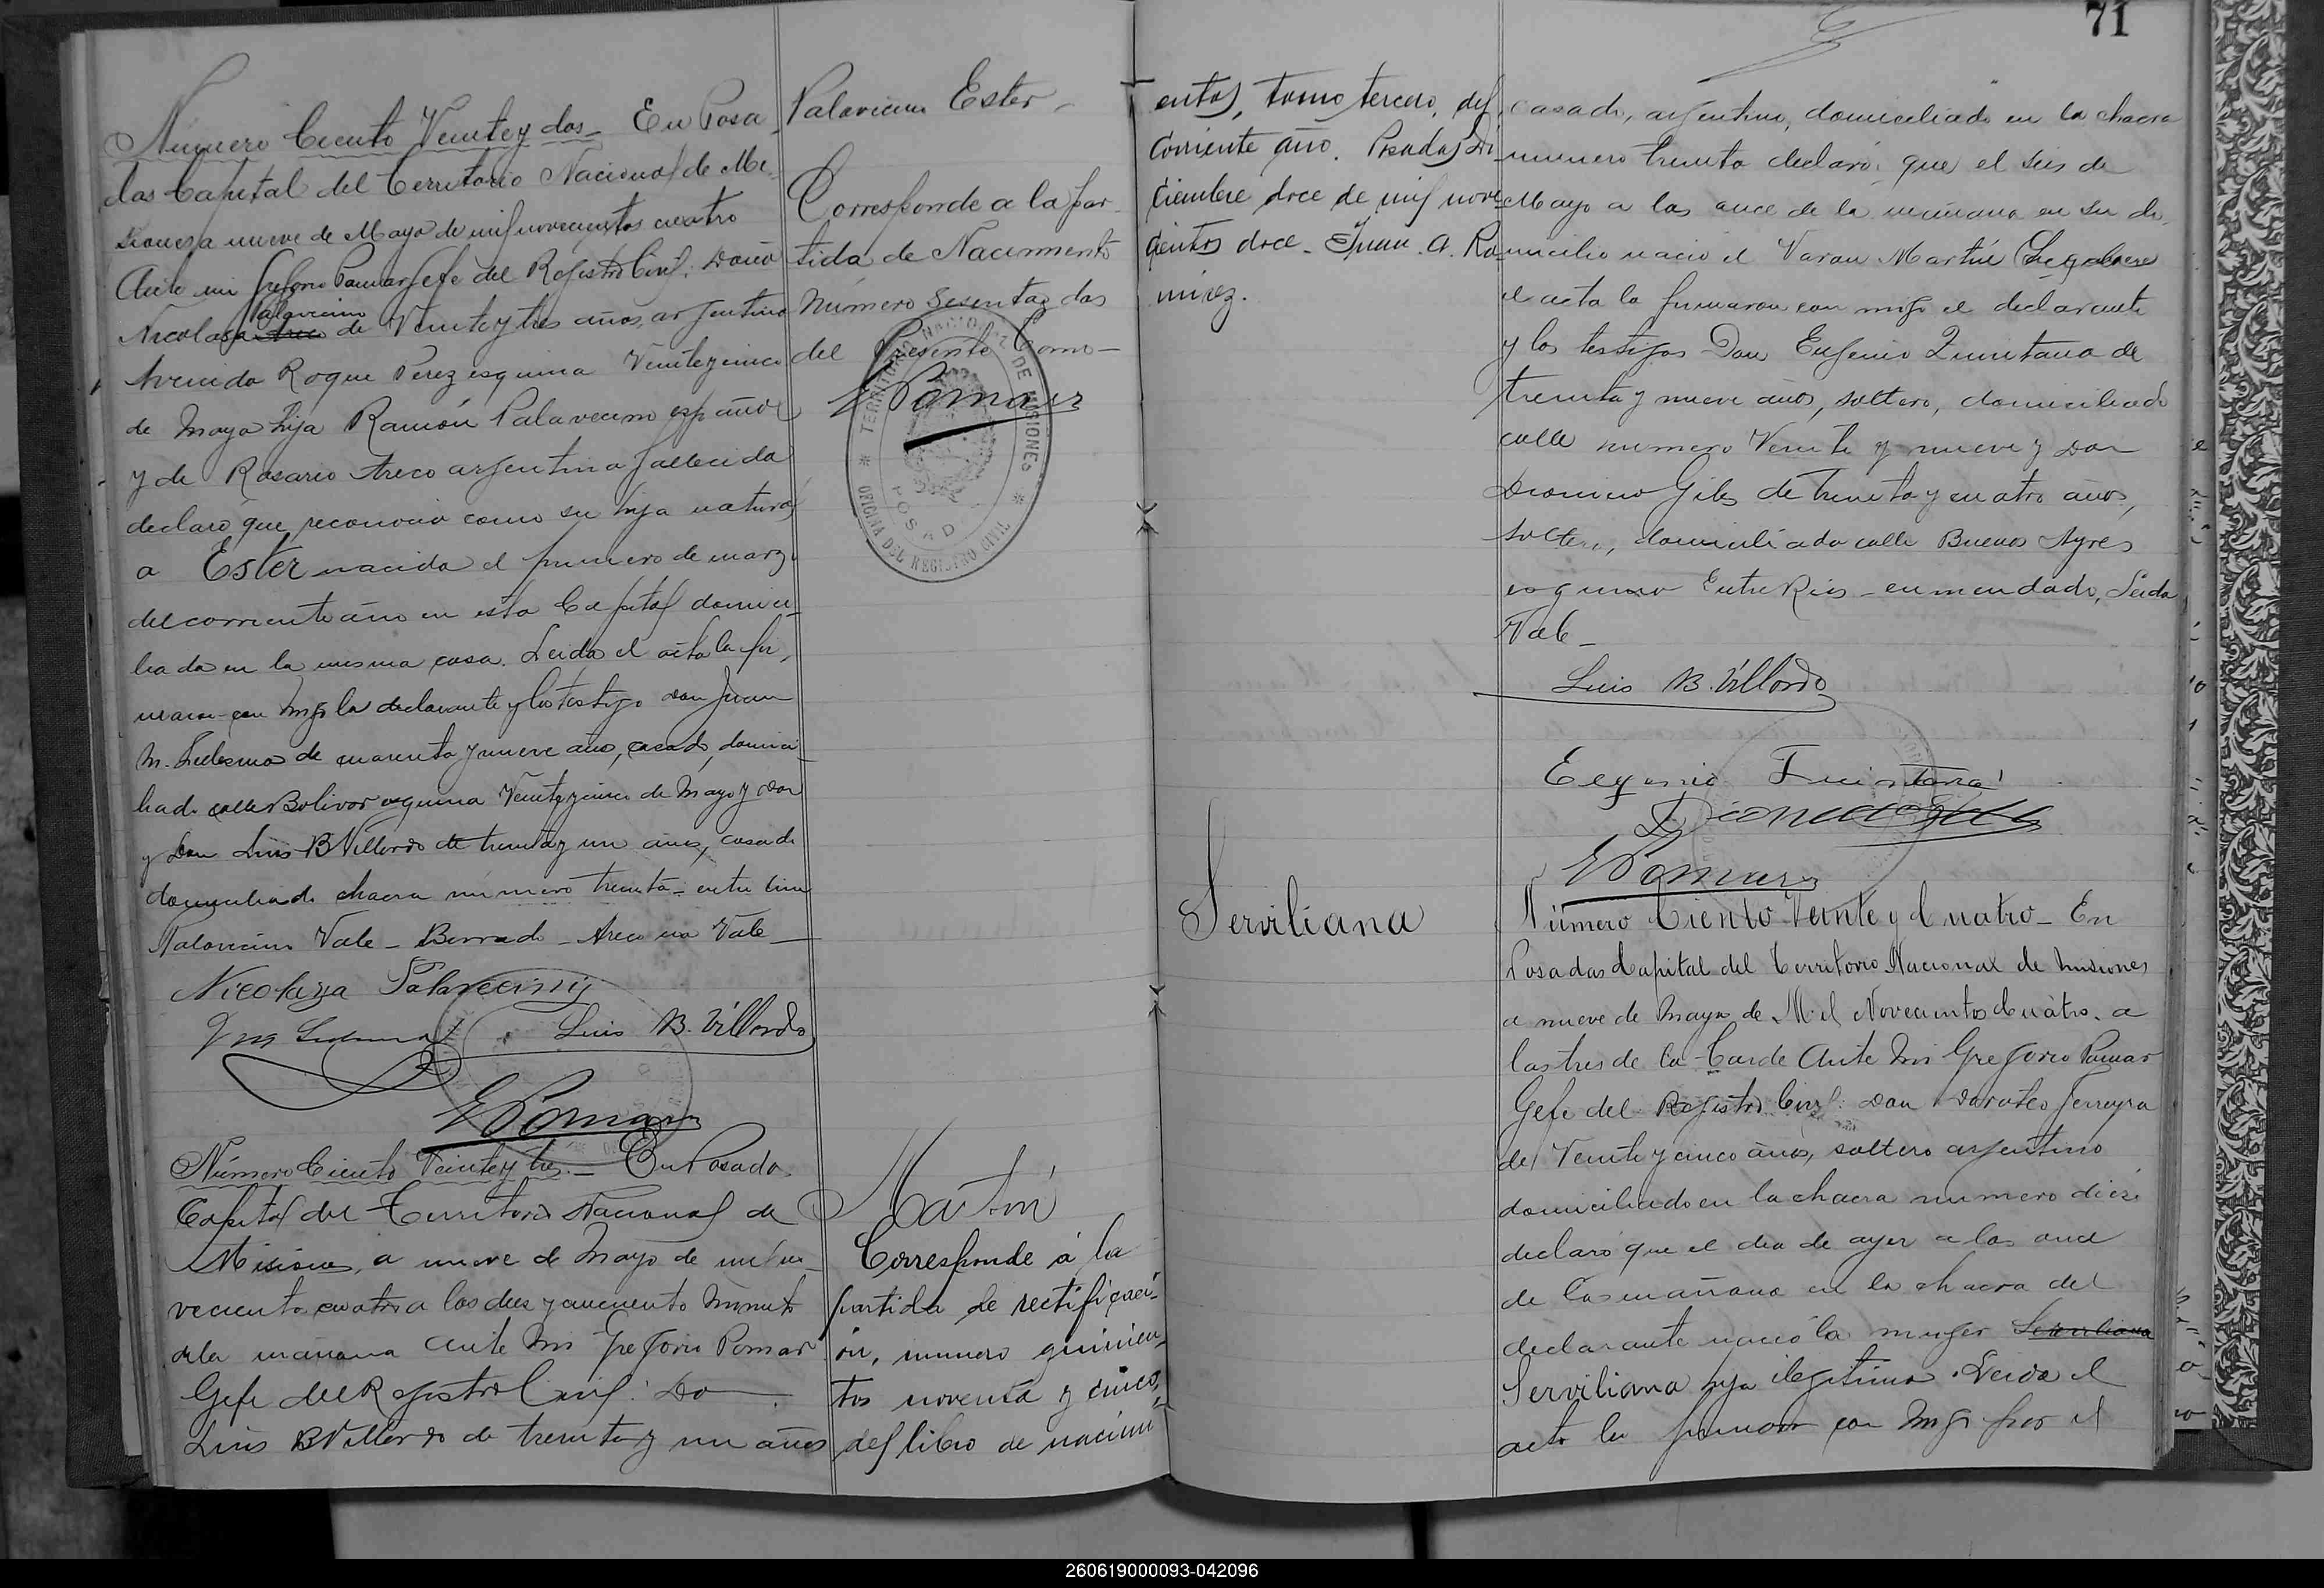 Número Ciento Veinte y dos_ En Posa_
das Capital del Territorio Nacional de Mi_
siones a nueve de Mayo de mil novecientos cuatro
Ante mi Gregorio Pomar Gefe del Registro Civil: Doña
Palavecino
Nicolasa Areco de Veinte y tres años, argentina
Avenida Roque Perez esquina Veinte y cinco
de Mayo hija Ramón Palavecino español
y de Rosario Areco argentina fallecida
declaró que reconocia como su hija natural
a Ester nacida el primero de marzo
del corriente año en esta Capital domici_
liada en la misma casa. Leida el acta la fir_
maron con migo la declarante y los testigo don Juan
M. Ledesma de cuarenta y nueve año, casado, domici_
liado calle Bolivar esquina Veinte y cinco de Mayo y don
y Don Luis B Villordo de treinta y un años, casado
domiciliado chacra número treinta_ entre linea
Palavecino Vale_ Borrado_ Areco no Vale_
Nicolaza Palavecini
J M Ledesma
Luis B. Villordo
G Pomar
Número Ciento Veinte y tres._ En Posadas
Capital del Territorio Nacional de
Misiones, a nueve de Mayo de mil no_
vecientos cuatro a las dies y cincuenta minutos
de la mañana Ante Mi Gregorio Pomar
Gefe del Registro Civil: Do
Luis B Villordo de treinta y un años
Palavecino Ester_
Corresponde a la par_
tida de Nacimiento
número Sesenta y dos
del Presente Tomo_
G Pomar
TERRITORIO NACIONAL DE MISIONES
POSAD
OFICINA DEL REGISTRO CIVIL
Martin
Corresponde á la
partida de rectificaci_
ón, número quinien_
tos noventa y cinco,
del libro de nacimi
71
entos, tomo tercero, del
corriente año. Posadas Di_
ciembre doce de mil nove_
cientos doce_ Juan A. Ra_
mirez.
Serviliana
casado, argentino, domiciliado en la chacra
numero treinta declaró: que el seis de
Mayo a las once de la mañana en su do_
micilio nació el Varon Martín
el acta la firmaron con migo el declarante
y los testigos Don Eugenio Quintana de
treinta y nueve años, soltero, domiciliado
calle numero Veinte y nueve y Don
Dionicio Giles de treinta y cuatro años,
soltero, domiciliado calle Buenos Ayres
esquina Entre Rios_ enmendado, Leida
Vale_
Luis B. Villordo
Eugenio
G Pomar
Número Ciento Veinte y Cuatro_ En
Posadas Capital del Territorio Nacional de Misiones
a nueve de Mayo de Mil Novecientos Cuatro. a
las tres de la Tarde Ante Mi Gregorio Pomar
Gefe del Registro Civil: Don Doroteo Ferreyra
de Veinte y cinco años, soltero argentino
domiciliado en la chacra numero diez
declaró que el dia de ayer a las once
de la mañana en la chacra del
declarante nació la muger Serviliana
Serviliana hija ilegitima. Leida el
acta la firmaron con migo por el
260619000093-042096